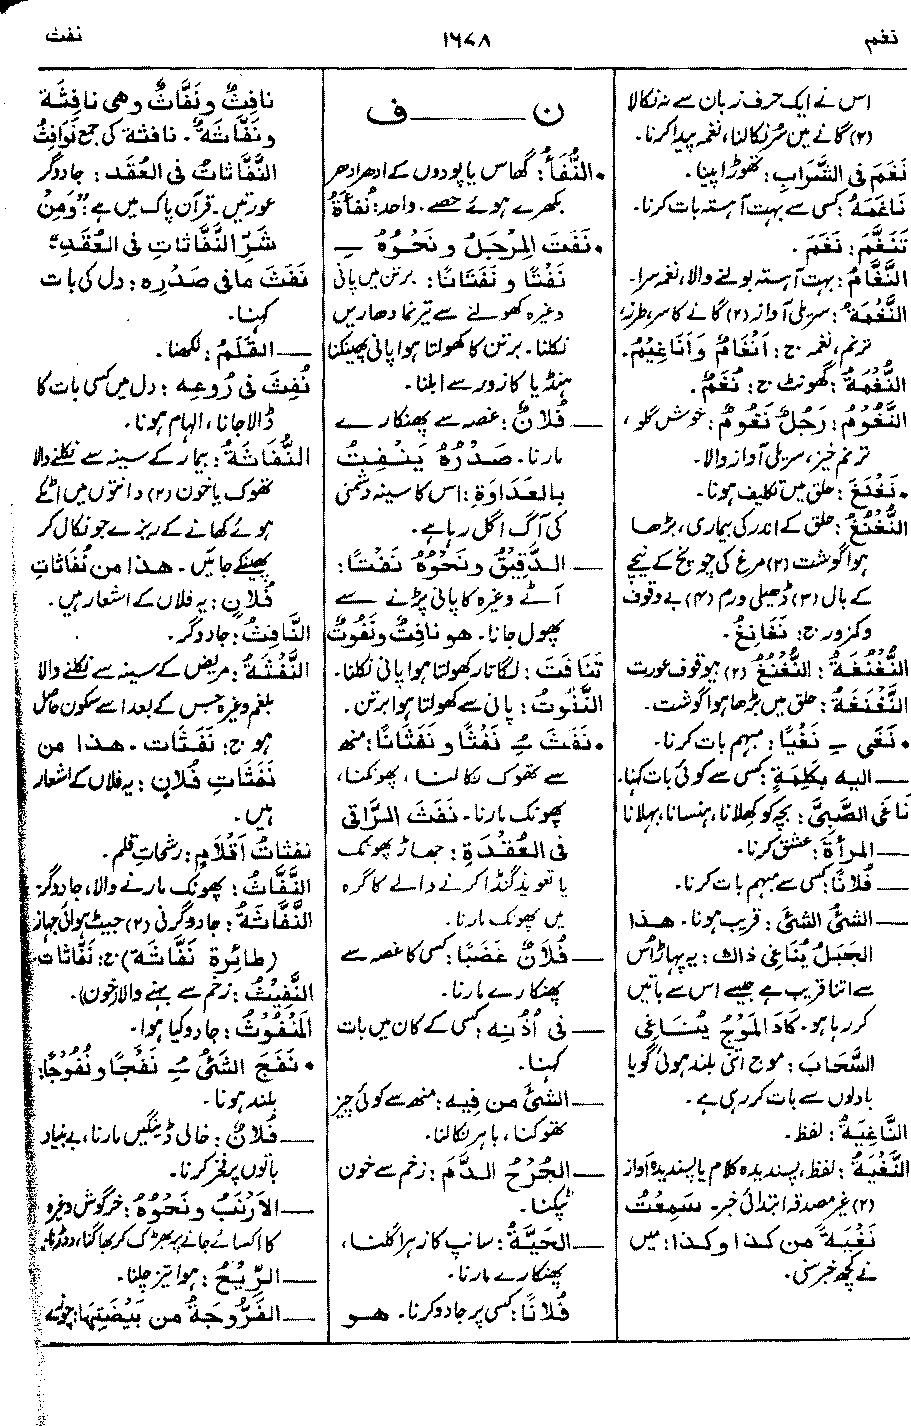 نغم
۱۶۷۸
نفث
اس نے ایک حرف زبان سے نہ نکالا
(۲) گانے میں سُر نکالنا، نغمہ پیدا کرنا۔
نَغَمَ فی الشَّرَابِ: تھوڑا پینا۔
نَاغَمَهُ: کسی سے بہت آہستہ بات کرنا۔
تَنَغَّمَ: نَغَمَ۔
النَّغَّامُ: بہت آہستہ بولنے والا، نغمہ سرا۔
النَّغْمَةُ: سریلی آواز (۲) گانے کا سر، طرز،
ترنم، نغمہ ج: اَنْغَامٌ وَاَنَاغِيْمُ۔
النُّغْمَةُ: گھونٹ ج: نُغَمٌ۔
النَّغُوْمُ: رَجُلٌ نَغُوْمٌ: خوش گلو،
ترنم خیز، سریلی آواز والا۔
• نَغْنَغَ: حلق میں تکلیف ہونا۔
النُّغْنُغُ: حلق کے اندر کی بیماری، بڑھا
ہوا گوشت (۲) مرغ کی چونچ کے نیچے
کے بال (۳) ڈھیلی ورم (۴) بے وقوف
و کمزور ج: نَغَانِغُ۔
النُّغْنُغَةُ: النُّغْنُغُ (۲) بیوقوف عورت
النَّغْنَغَةُ: حلق میں بڑھا ہوا گوشت۔
• نَغٰى ــِ نَغْيًا: مبہم بات کرنا۔
— الیه بِكَلِمَةٍ: کسی سے کوئی بات کہنا۔
نَاغَى الصَّبِيَّ: بچہ کو کھلانا، ہنسانا، بہلانا
— المرأةَ: عشق کرنا۔
— فُلَانًا: کسی سے مبہم بات کرنا۔
— الشئُ الشئَ: قریب ہونا۔ هذا
الجَبَلُ يُنَاغِي ذالك: یہ پہاڑ اُس
سے اتنا قریب ہے جیسے اس سے باتیں
کر رہا ہو۔ كَادَ المَوْجُ يُنَاغِي
السَّحَابَ: موج اتنی بلند ہوئی گویا
بادلوں سے بات کر رہی ہے۔
النَّاغِيَةُ: لفظ۔
النَّغْيَةُ: لفظ، پسندیدہ کلام یا پسندیدہ آواز
(۲) غیر مصدقہ ابتدائی خبر۔ سَمِعْتُ
نَغْيَةً من كذا و كذا: میں
نے کچھ خبر سنی۔
ن ــــــ ف
• النُّفَأُ: گھاس یا پودوں کے ادھر ادھر
بکھرے ہوئے حصے۔ واحد: نُفَأَةٌ
• نَفَتَ المِرْجَلُ و نَحْوُهُ ــِ
نَفْتًا و نَفَتَانًا: برتن میں پانی
وغیرہ کھولنے سے تیز نما دھاریں
نکلنا۔ برتن کا کھولتا ہوا پانی پھینکنا
ہنڈیا کا زور سے ابلنا۔
— فُلَانٌ: غصہ سے پھنکارے
مارنا۔ صَدْرُهُ يَنْفِتُ
بالعَدَاوَةِ: اس کا سینہ دشمنی
کی آگ اگل رہا ہے۔
— الدَّقِيْقُ و نَحْوُهُ نَفْتًا:
آٹے وغیرہ کا پانی پڑنے سے
پھول جانا۔ هو نافِتٌ و نَفُوْتٌ
تَنَافَتَ: لگاتار کھولتا ہوا پانی نکلنا۔
النَّفُوْتُ: پانی سے کھولتا ہوا برتن۔
• نَفَثَ ــُِ نَفْثًا و نَفَثَانًا: منھ
سے تھوک نکالنا، پھونکنا،
پھونک مارنا۔ نَفَثَ الرَّاقِي
في العُقْدَةِ: جھاڑ پھونک
یا تعویذ گنڈا کرنے والے کا گرہ
میں پھونک مارنا۔
— فُلَانٌ غَضَبًا: کسی کا غصہ سے
پھنکارے مارنا۔
— في اُذُنِه: کسی کے کان میں بات
کہنا۔
— الشئَ من فِيه: منھ سے کوئی چیز
تھوکنا، باہر نکالنا۔
— الجُرْحُ الدَّمَ: زخم سے خون
ٹپکنا۔
— الحَيَّةُ: سانپ کا زہر اگلنا،
پھنکارے مارنا۔
— فُلَانًا: کسی پر جادو کرنا۔ هو
نافِثٌ و نَفَّاثٌ و هي نافِثَة
و نَفَّاثَةٌ۔ نافثة کی جمع نَوَافِثُ
النَّفَّاثَاتُ في العُقَد: جادوگر
عورتیں۔ قرآن پاک میں ہے: "وَمِنْ
شَرِّ النَّفَّاثَاتِ فِي العُقَدِ"
نَفَثَ ما في صَدْرِه: دل کی بات
کہنا۔
— القَلَمُ: لکھنا۔
نُفِثَ في رُوعِه: دل میں کسی بات کا
ڈالا جانا، الہام ہونا۔
النُّفَاثَةُ: بیمار کے سینہ سے نکلنے والا
تھوک یا خون (۲) دانتوں میں اٹکے
ہوئے کھانے کے ریزے جو نکال کر
پھینکے جائیں۔ هذا من نُفَاثَاتِ
فُلَانٍ: یہ فلاں کے اشعار ہیں۔
النَّافِثُ: جادوگر۔
النَّفْثَةُ: مریض کے سینہ سے نکلنے والا
بلغم وغیرہ جس کے بعد اسے سکون حاصل
ہو ج: نَفَثَات۔ هذا من
نَفَثَاتِ فُلَانٍ: یہ فلاں کے اشعار
ہیں۔
نَفَثَاتُ اَقْلَامٍ: رشحاتِ قلم۔
النَّفَّاثُ: پھونک مارنے والا، جادوگر۔
النَّفَّاثَةُ: جادوگرنی (۲) جیٹ ہوائی جہاز
(طائرة نَفَّاثَة) ج: نَفَّاثَات
النَّفِيْثُ: زخم سے بہنے والا (خون)۔
المَنْفُوْثُ: جادو کیا ہوا۔
• نَفَجَ الشئُ ــُِ نَفْجًا و نُفُوْجًا:
بلند ہونا۔
— فُلَانٌ: خالی ڈینگیں مارنا، بے بنیاد
باتوں پر فخر کرنا۔
— الاَرْنَبُ و نَحْوُهُ: خرگوش وغیرہ
کا اکسائے جانے پر بھڑک کر بھاگنا، دوڑنا۔
— الرِّيْحُ: ہوا تیز چلنا۔
— الفَرُّوْجَةُ من بَيْضَتِهَا: چوزے